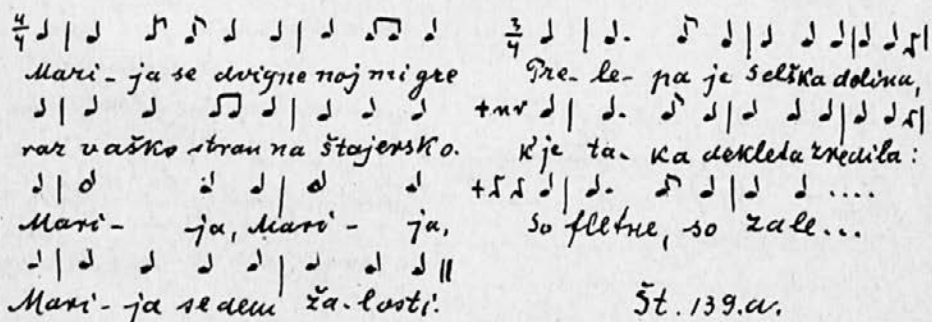 4/4
Mari-ja se dvigne noj mi gre
raz vaško stran na štajersko.
Mari- ja, Mari- ja,
Mari-ja sedem ža-losti.
3/4
Pre-le- pa je Selška dolina,
k'je ta- ka dekleta zredila:
so fletne, so zale...
Št. 139.a.